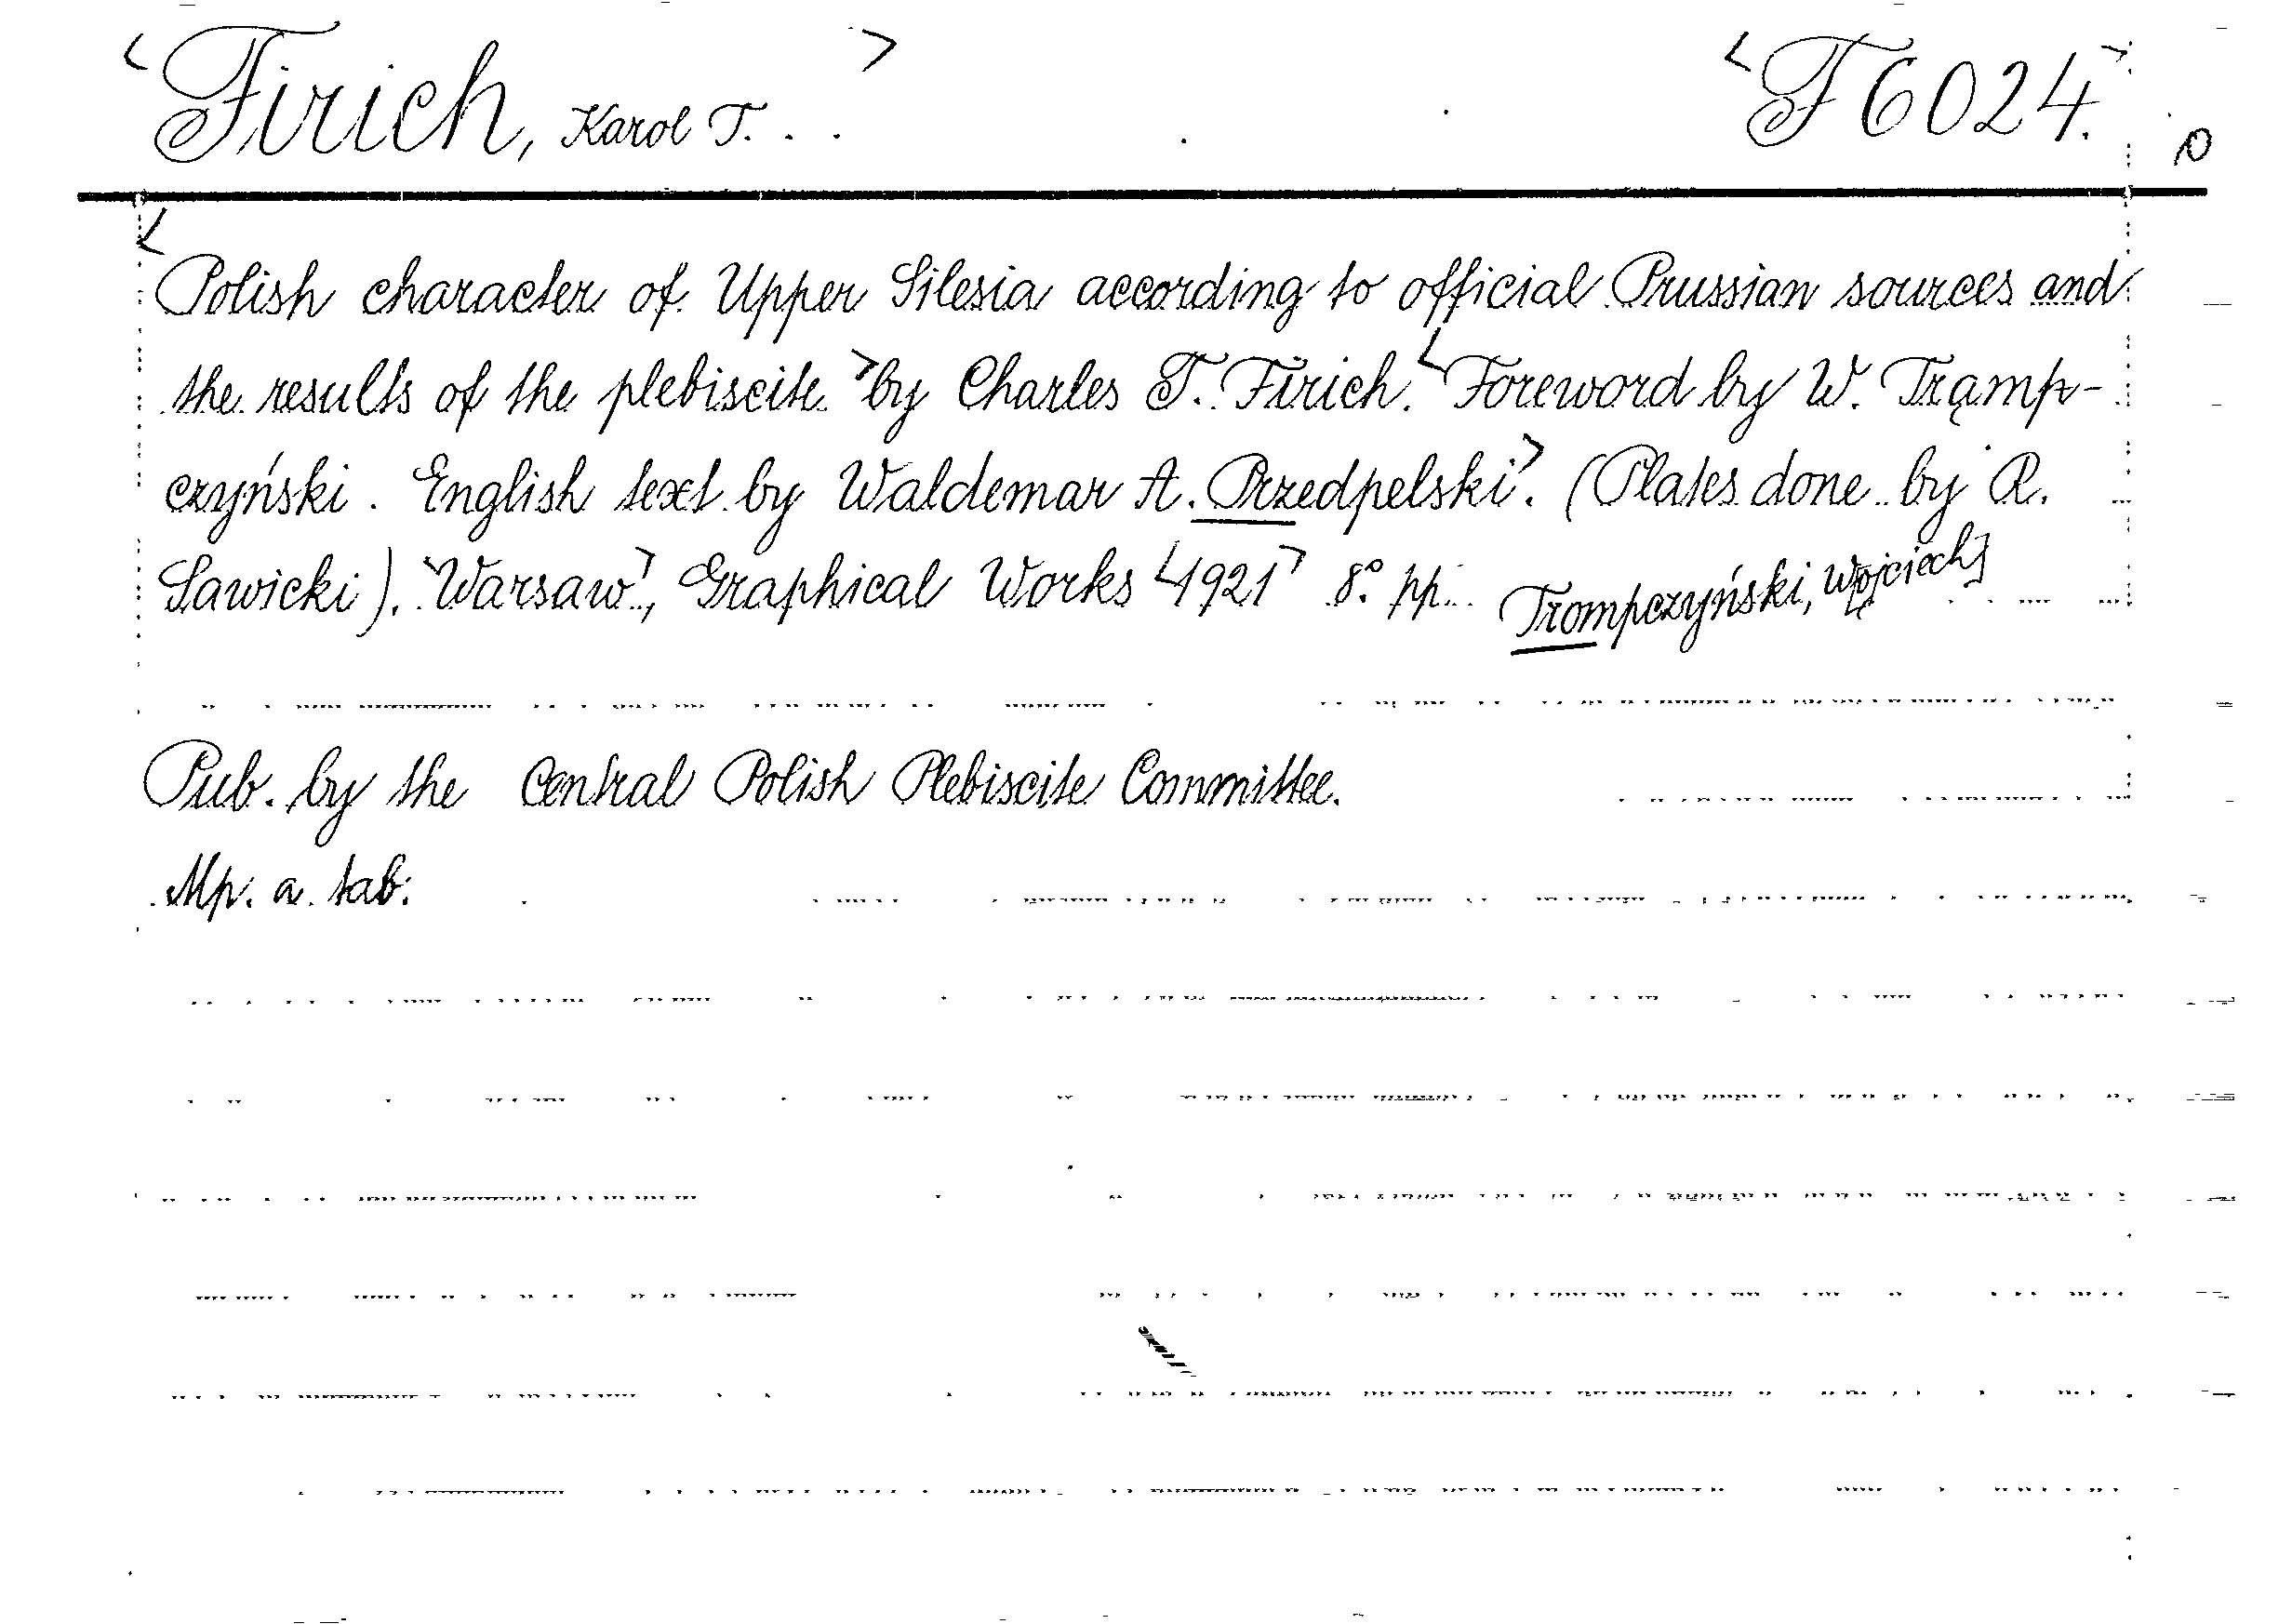 <Firich, Karol T. . .> <F 6024.>
<Polish character of Upper Silesia according to official Prussian sources and
the results of the plebiscite> by Charles T. Firich. <Foreword by W. Trąmp-
czyński. English text by Waldemar A. Przedpelski>. (Plates done by R.
Sawicki). <Warsaw>, Graphical Works <1921> 8° pp. Trompczyński, Wojciech]
Pub. by the Central Polish Plebiscite Committee.
Mp. a. tab.